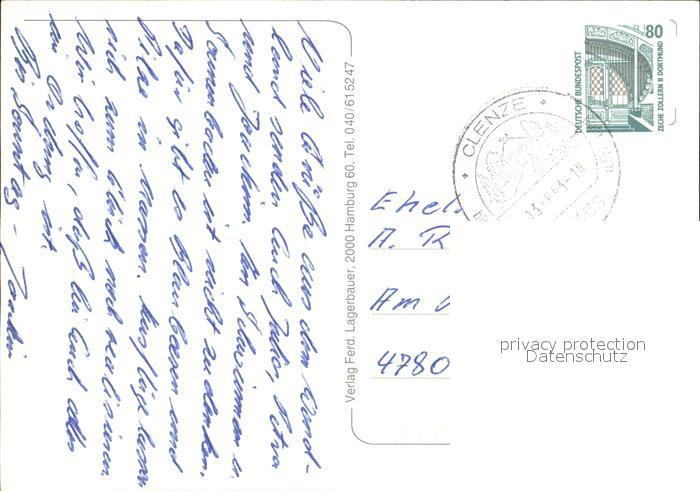 Viele Grüße aus dem Wend-
land senden Euch Judo, Petra
und Joachim. An Schwimmen u.
Sonnenbaden ist nicht zu denken.
Dafür gibt es Blaubeeren und
Pilze in Massen. Ausflüge lassen
sich zum Glück noch realisieren.
Wir hoffen, daß bei Euch alles
in Ordnung ist.
Bis Sonntag –
Verlag Ferd. Lagerbauer, 2000 Hamburg 60, Tel. 040/615247
80
DEUTSCHE BUNDESPOST
ZECHE ZOLLERN II DORTMUND
CLENZE
Ehel
A. R
Am
4780
privacy protection
Datenschutz